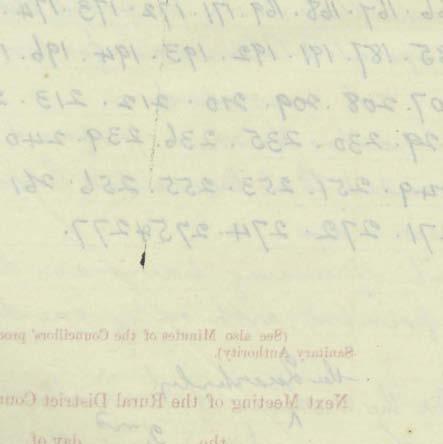 6. 167. 168. 169. 171. 172. 173. 174.
187. 191. 192. 193. 194. 196.
07. 208. 209. 210. 212. 213.
29. 230. 235. 236. 239. 240
49. 251. 253. 255. 256. 261
71. 272. 274. 275 & 277.
(See also Minutes of the Councillors' proc
Sanitary Authority).
Next Meeting of the Rural District Coun
the 2nd day of